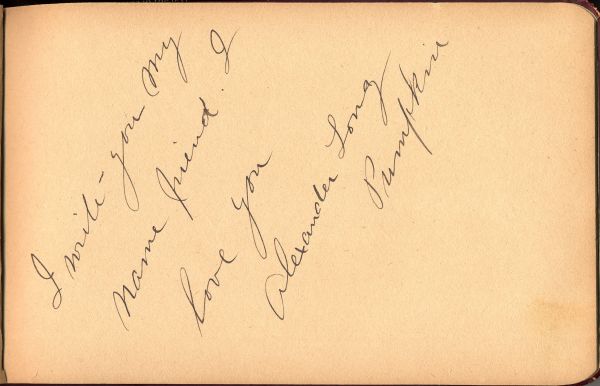 I write - you my
name friend. I
love you
Alexander Long
Pumpkin